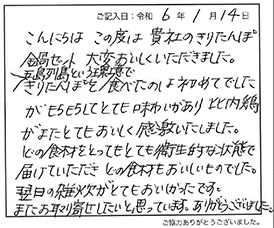 ご記入日：令和 6年 1月 14日
こんにちは この度は 貴社のきりたんぽ
鍋セット 大変おいしくいただきました。
五島列島という環境で
きりたんぽを食べたのは初めてでした
がもちもちしてとても味わいがあり 比内鶏
がまたとてもおいしく感激いたしました。
どの食材をとってもとても衛生的な状態で
届けていただき どの食材もおいしいものでした。
翌日の雑炊がとてもおいしかったです。
またお取り寄せしたいと思っています。ありがとうございました。
ご協力ありがとうございました。